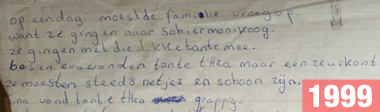 op eendag moest de familie vroeg op.
want ze gingen naar Schiermonikoog.
ze gingen met die dikke tante mee.
bas en eva vonden tante thea maar een zeurkont
ze moesten steeds netjes en schoon zijn.
vond tante thea grappig.
1999